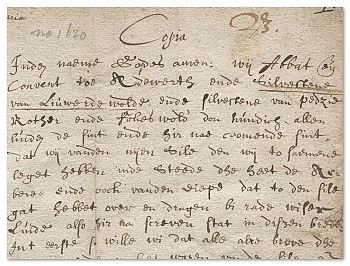 no 1620
Copia
23.
Inden naeme Godes amen: wij Abbat en
Convent toe Adewerth ende Silvestene
van Liuwerderwolde ende silvestene van Pedzie
Kother ende folkes wold don kundich allen
luiden de sint ende hir nae coomende sint,
dat wij vanden nijen Sile den wij to saemene
leget hebben inde Steede dhe heet de Ar
bere, ende oock vanden diepe dat to den sile
gat hebbet over en dragen bi rade wiser
Luide also hir na screven stat in dissen breve
Int eerste so wille wij dat alle alre breve dhe